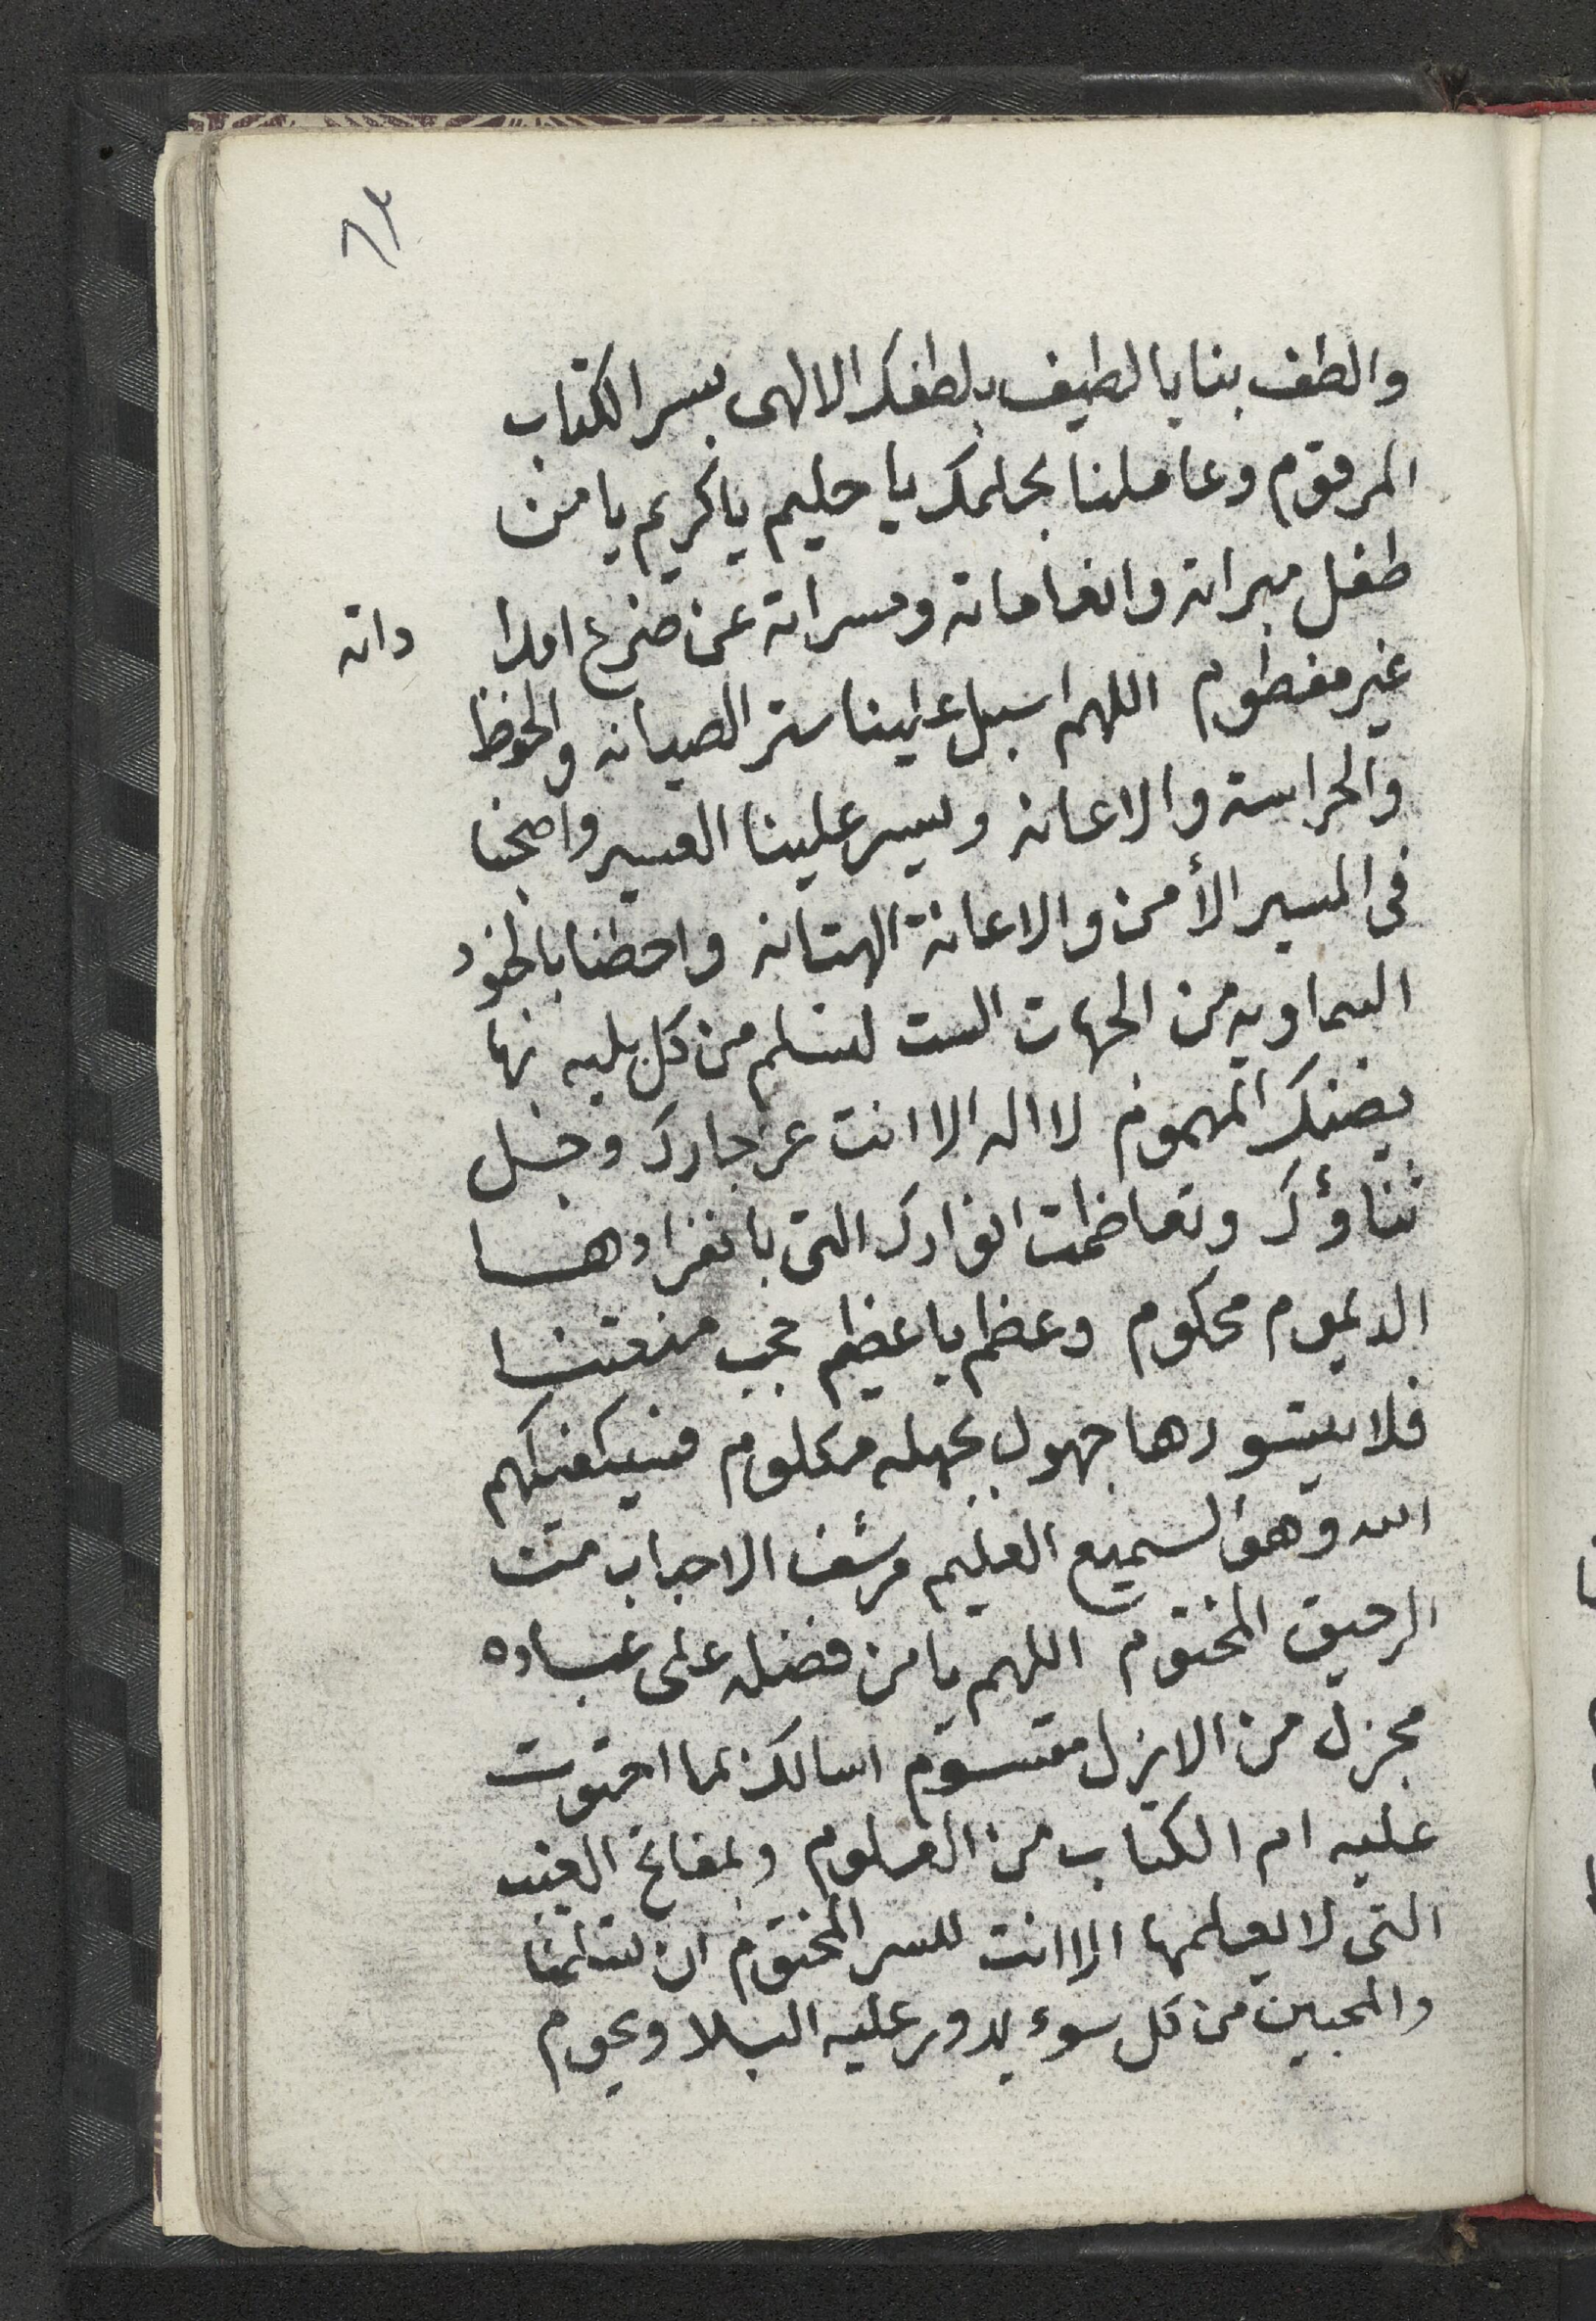 ٨٣
والطف بنا يا لطيف بلطفك الالهى بسر الكتاب
المرقوم وعاملنا بحلمك يا حليم يا كريم يا من
طفل مبراته وانعاماته ومسراته عن ضرع امدا داته
غير مفطوم اللهم اسبل علينا ستر الصيانه والحفظ
والحراسة والاعانه ويسر علينا العسير واصحبنا
فى المسير الأمن والاعانة الهتانه واحطنا بالجنود
السماويه من الجهات الست لنسلم من كل بليه بها
يضنك المهموم لا اله الا انت عز جارك وجل
ثناؤك وتعاظمت انوارك التى بانفرادها
الديموم محكوم وعظم يا عظيم حجب منعتنا
فلا يتسورها جهول بجهله مكلوم فسيكفيكهم
الله وهو السميع العليم مرشف الاحباب من
الرحيق المختوم اللهم يا من فضله على عباده
مجزل من الازل مقسوم اسالك بما احتوت
عليه ام الكتاب من العلوم وبمفاتح الغيب
التى لا يعلمها الا انت للسر المختوم ان تسلمنا
والمحبين من كل سوء يدور عليه البلا ويحوم